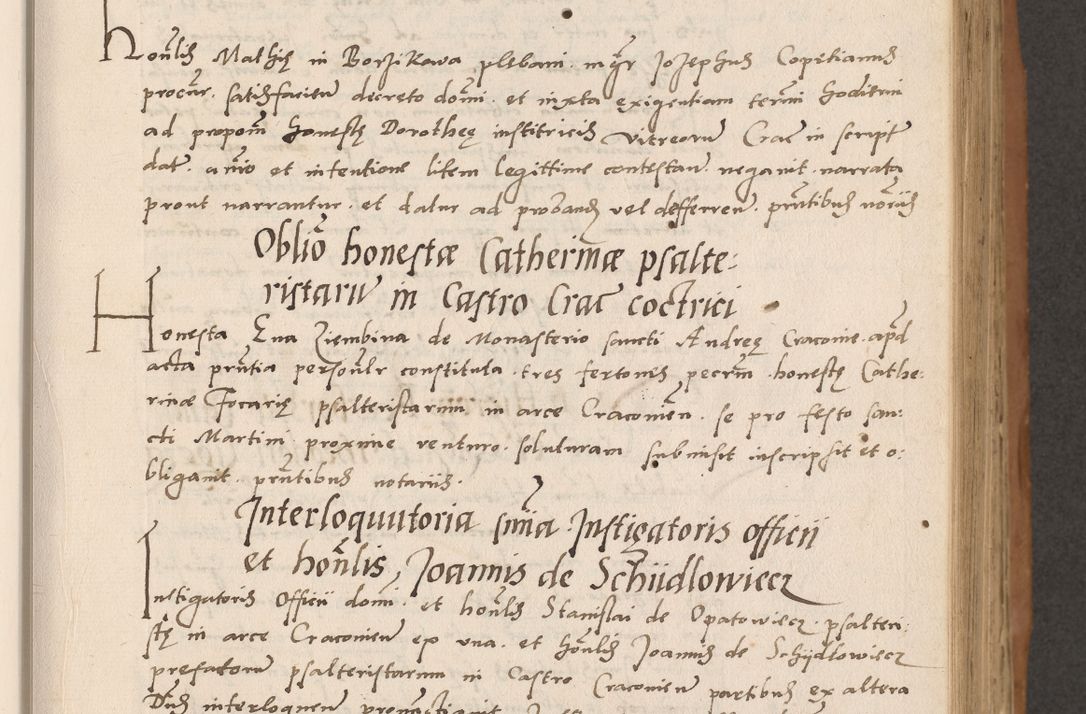 Honĕlis Mathię in Borzikawa plebani. mgr Josephus Copetianus
procur. satisfaciens decreto domi. et iuxta exigentiam termi hodierni
ad proponm honestę Dorotheę institricis vitreorum Crac in script
dat. animo et intentione litem legittime contestan. negavit narrata
prout narrantur. et datur ad proband vel defferren. pntibus notariis
Oblio honestæ Catherinæ psalte:
ristaru in Castro Crac coctrici
Honesta Eva Ziembina de Monasterio sancti Andreę Cracovie. apd
acta pntia personlr constituta. tres fertones pecrm. honestę Cathe:
rinæ Focarię psalteristarum in arce Cracovien. se pro festo san:
cti Martini proxime venturo. soluturam submisit inscripsit et o:
bligavit. pntibus notariis.
Interloquutoria snia Instigatoris officii
et honlis Joannis de Schidlowiecz
Instigatoris Officii domi. et honlis Stanislai de Opatowiecz. psalteri:
stę in arce Cracovien ex una. et honlis Joannis de Schydlowiecz
prefatorum psalteristarum in Castro Cracovien partibus ex altera
Dns interloquen